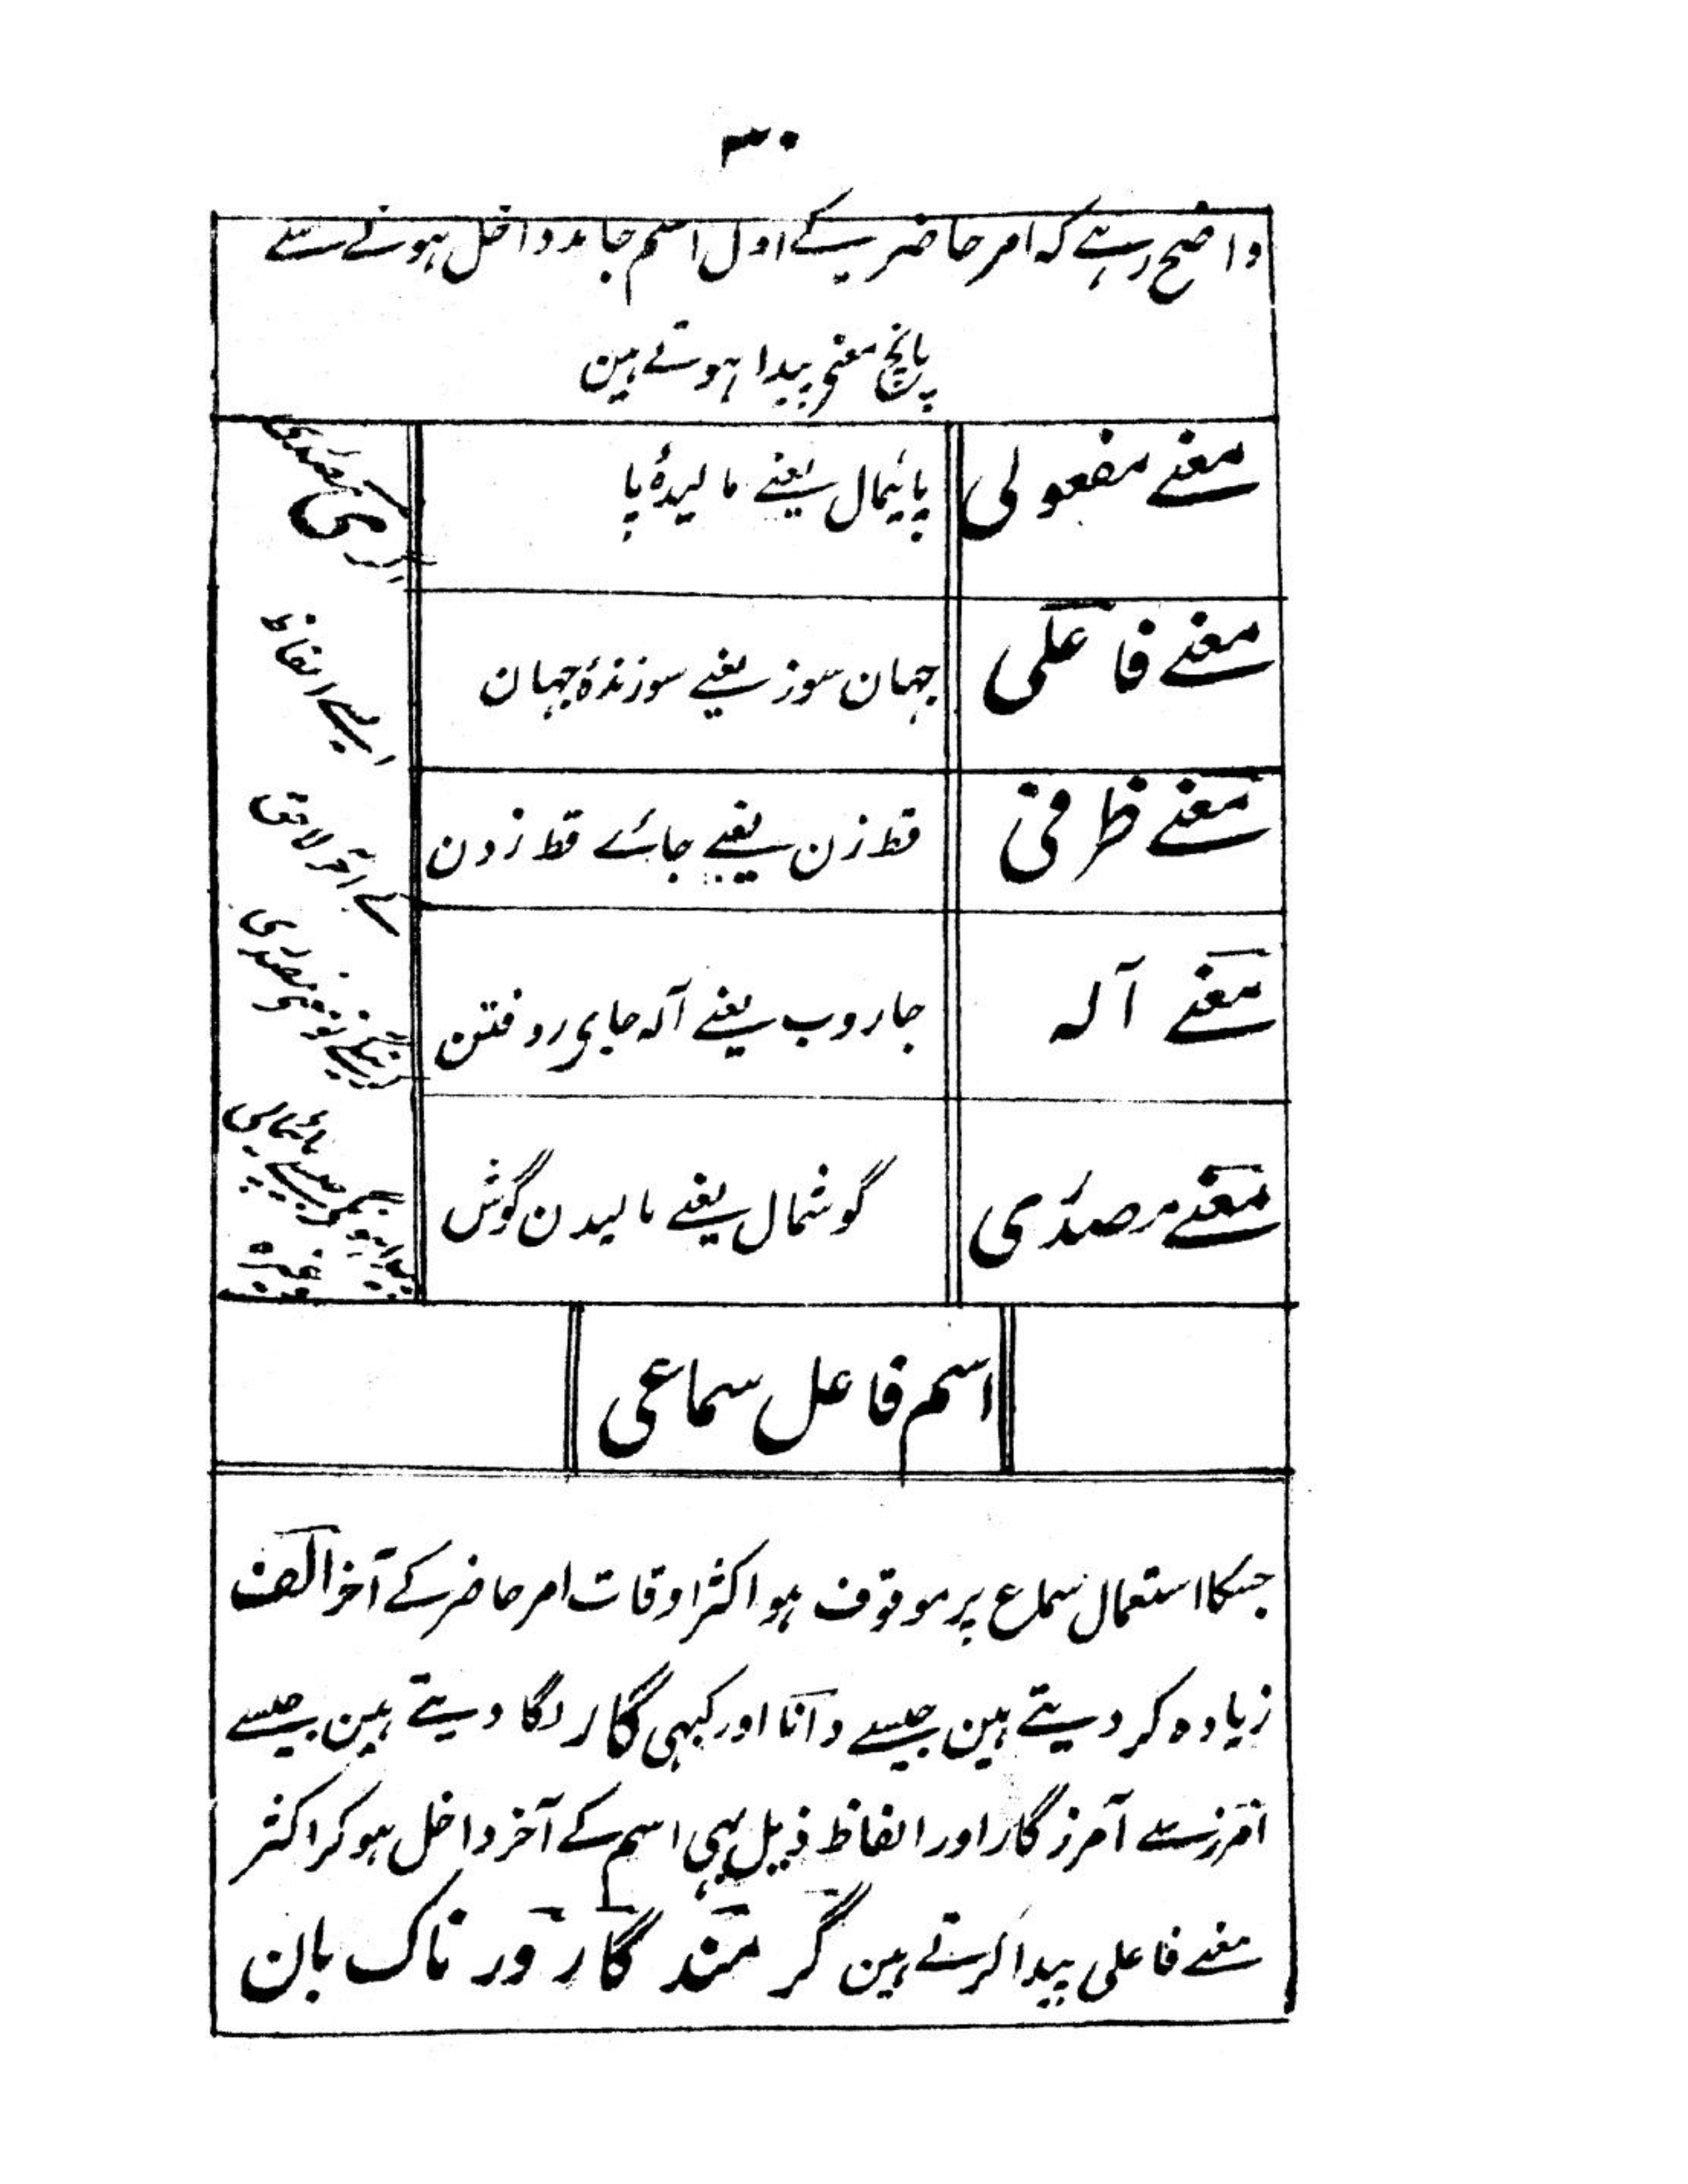 ۳۰
واضح رہے کہ امر حاضر کے اول اسم جامد داخل ہونے سے
پانچ معنی پیدا ہوتے ہین
معنے مفعولی
پائیمال یعنے مالیدۂ پا
معنے فاعلی
جہان سوز یعنے سوزندۂ جہان
معنے ظرفی
قط زن یعنے جائے قط زدن
معنے آلہ
جاروب یعنے آلہ جای روفتن
معنے مصدری
گوشمال یعنے مالیدن گوش
ی مصدری
ایسے الفاظ
لاحق
مصدری
جیسے پائمالی
اسم فاعل سماعی
جسکا استعمال سماع پر موقوف ہو اکثر اوقات امر حاضر کے آخر الف
زیادہ کر دیتے ہین جیسے دانا اور کبہی گار لگا دیتے ہین جیسے
آمرز سے آمرزگار اور الفاظ ذیل بہی اسم کے آخر داخل ہو کر اکثر
معنے فاعلی پیدا کرتے ہین گر مند گار ور ناک بان